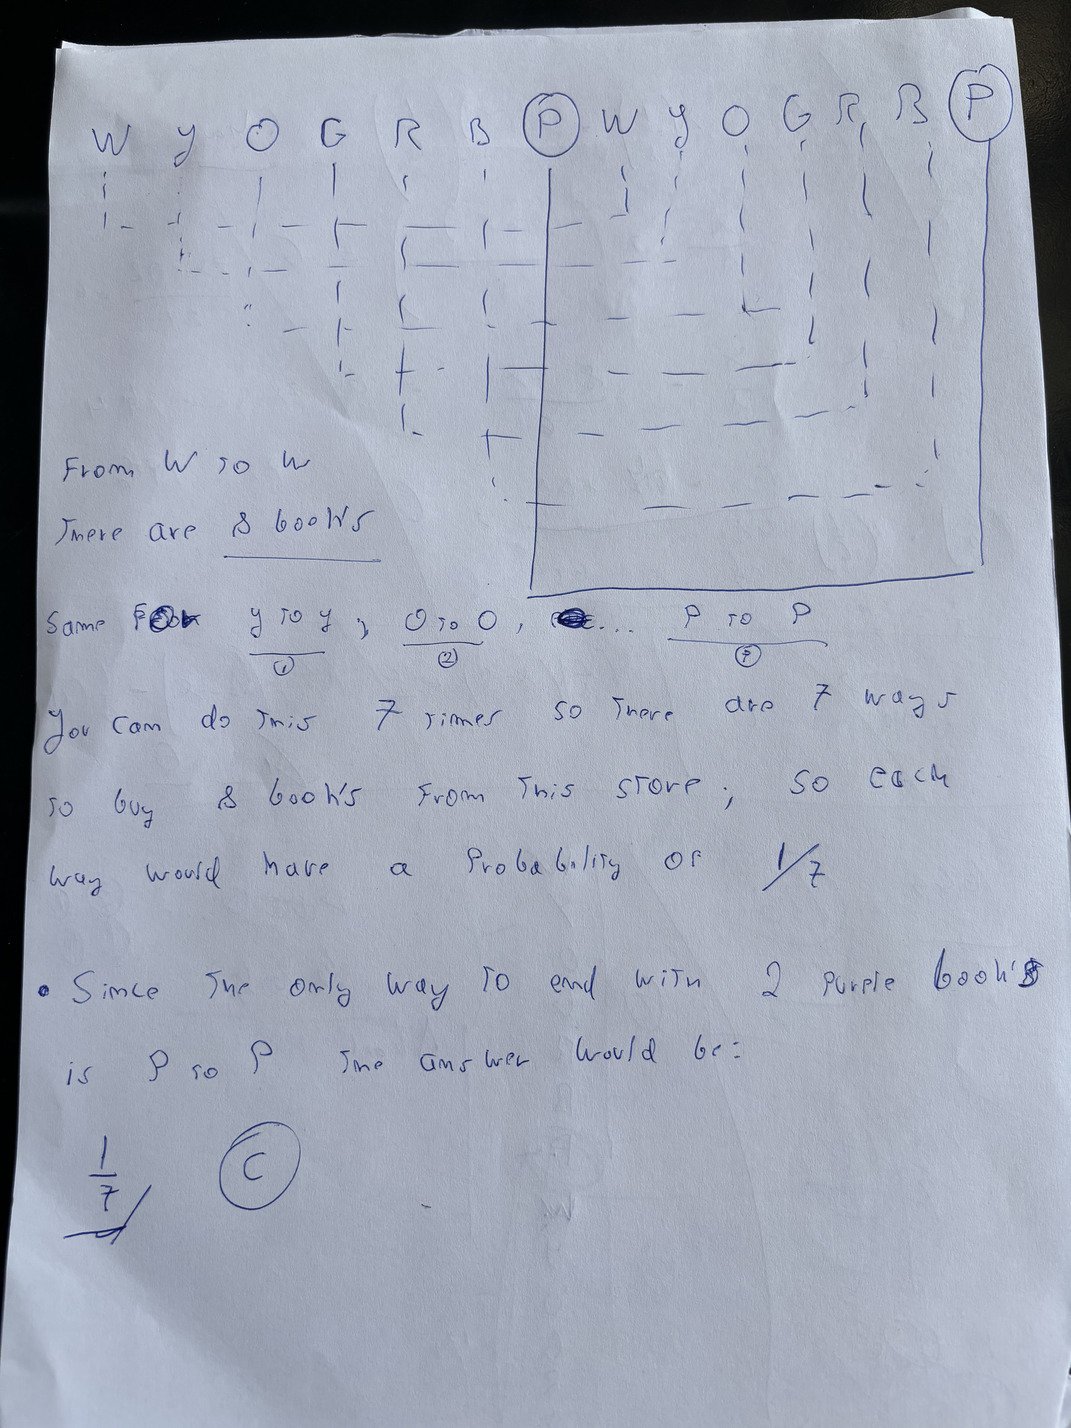 W Y O G R B P W Y O G R B P
From W to W
There are 8 book's
Same For Y to Y, O to O, ... P to P
1 2 7
You can do this 7 times so there are 7 ways
to buy 8 book's from this store, so each
way would have a Probability of 1/7
• Since the only way to end with 2 purple book's
is P to P the answer would be:
1/7 C